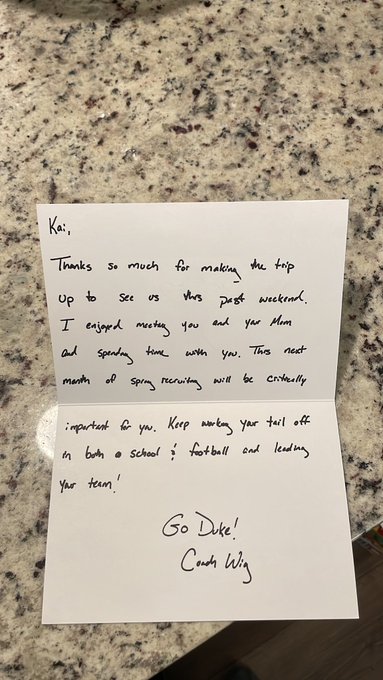 Kai,
Thanks so much for making the trip
up to see us this past weekend.
I enjoyed meeting you and your Mom
and spending time with you. This next
month of spring recruiting will be critically
important for you. Keep working your tail off
in both @ school & football and leading
your team!
Go Duke!
Coach Wig